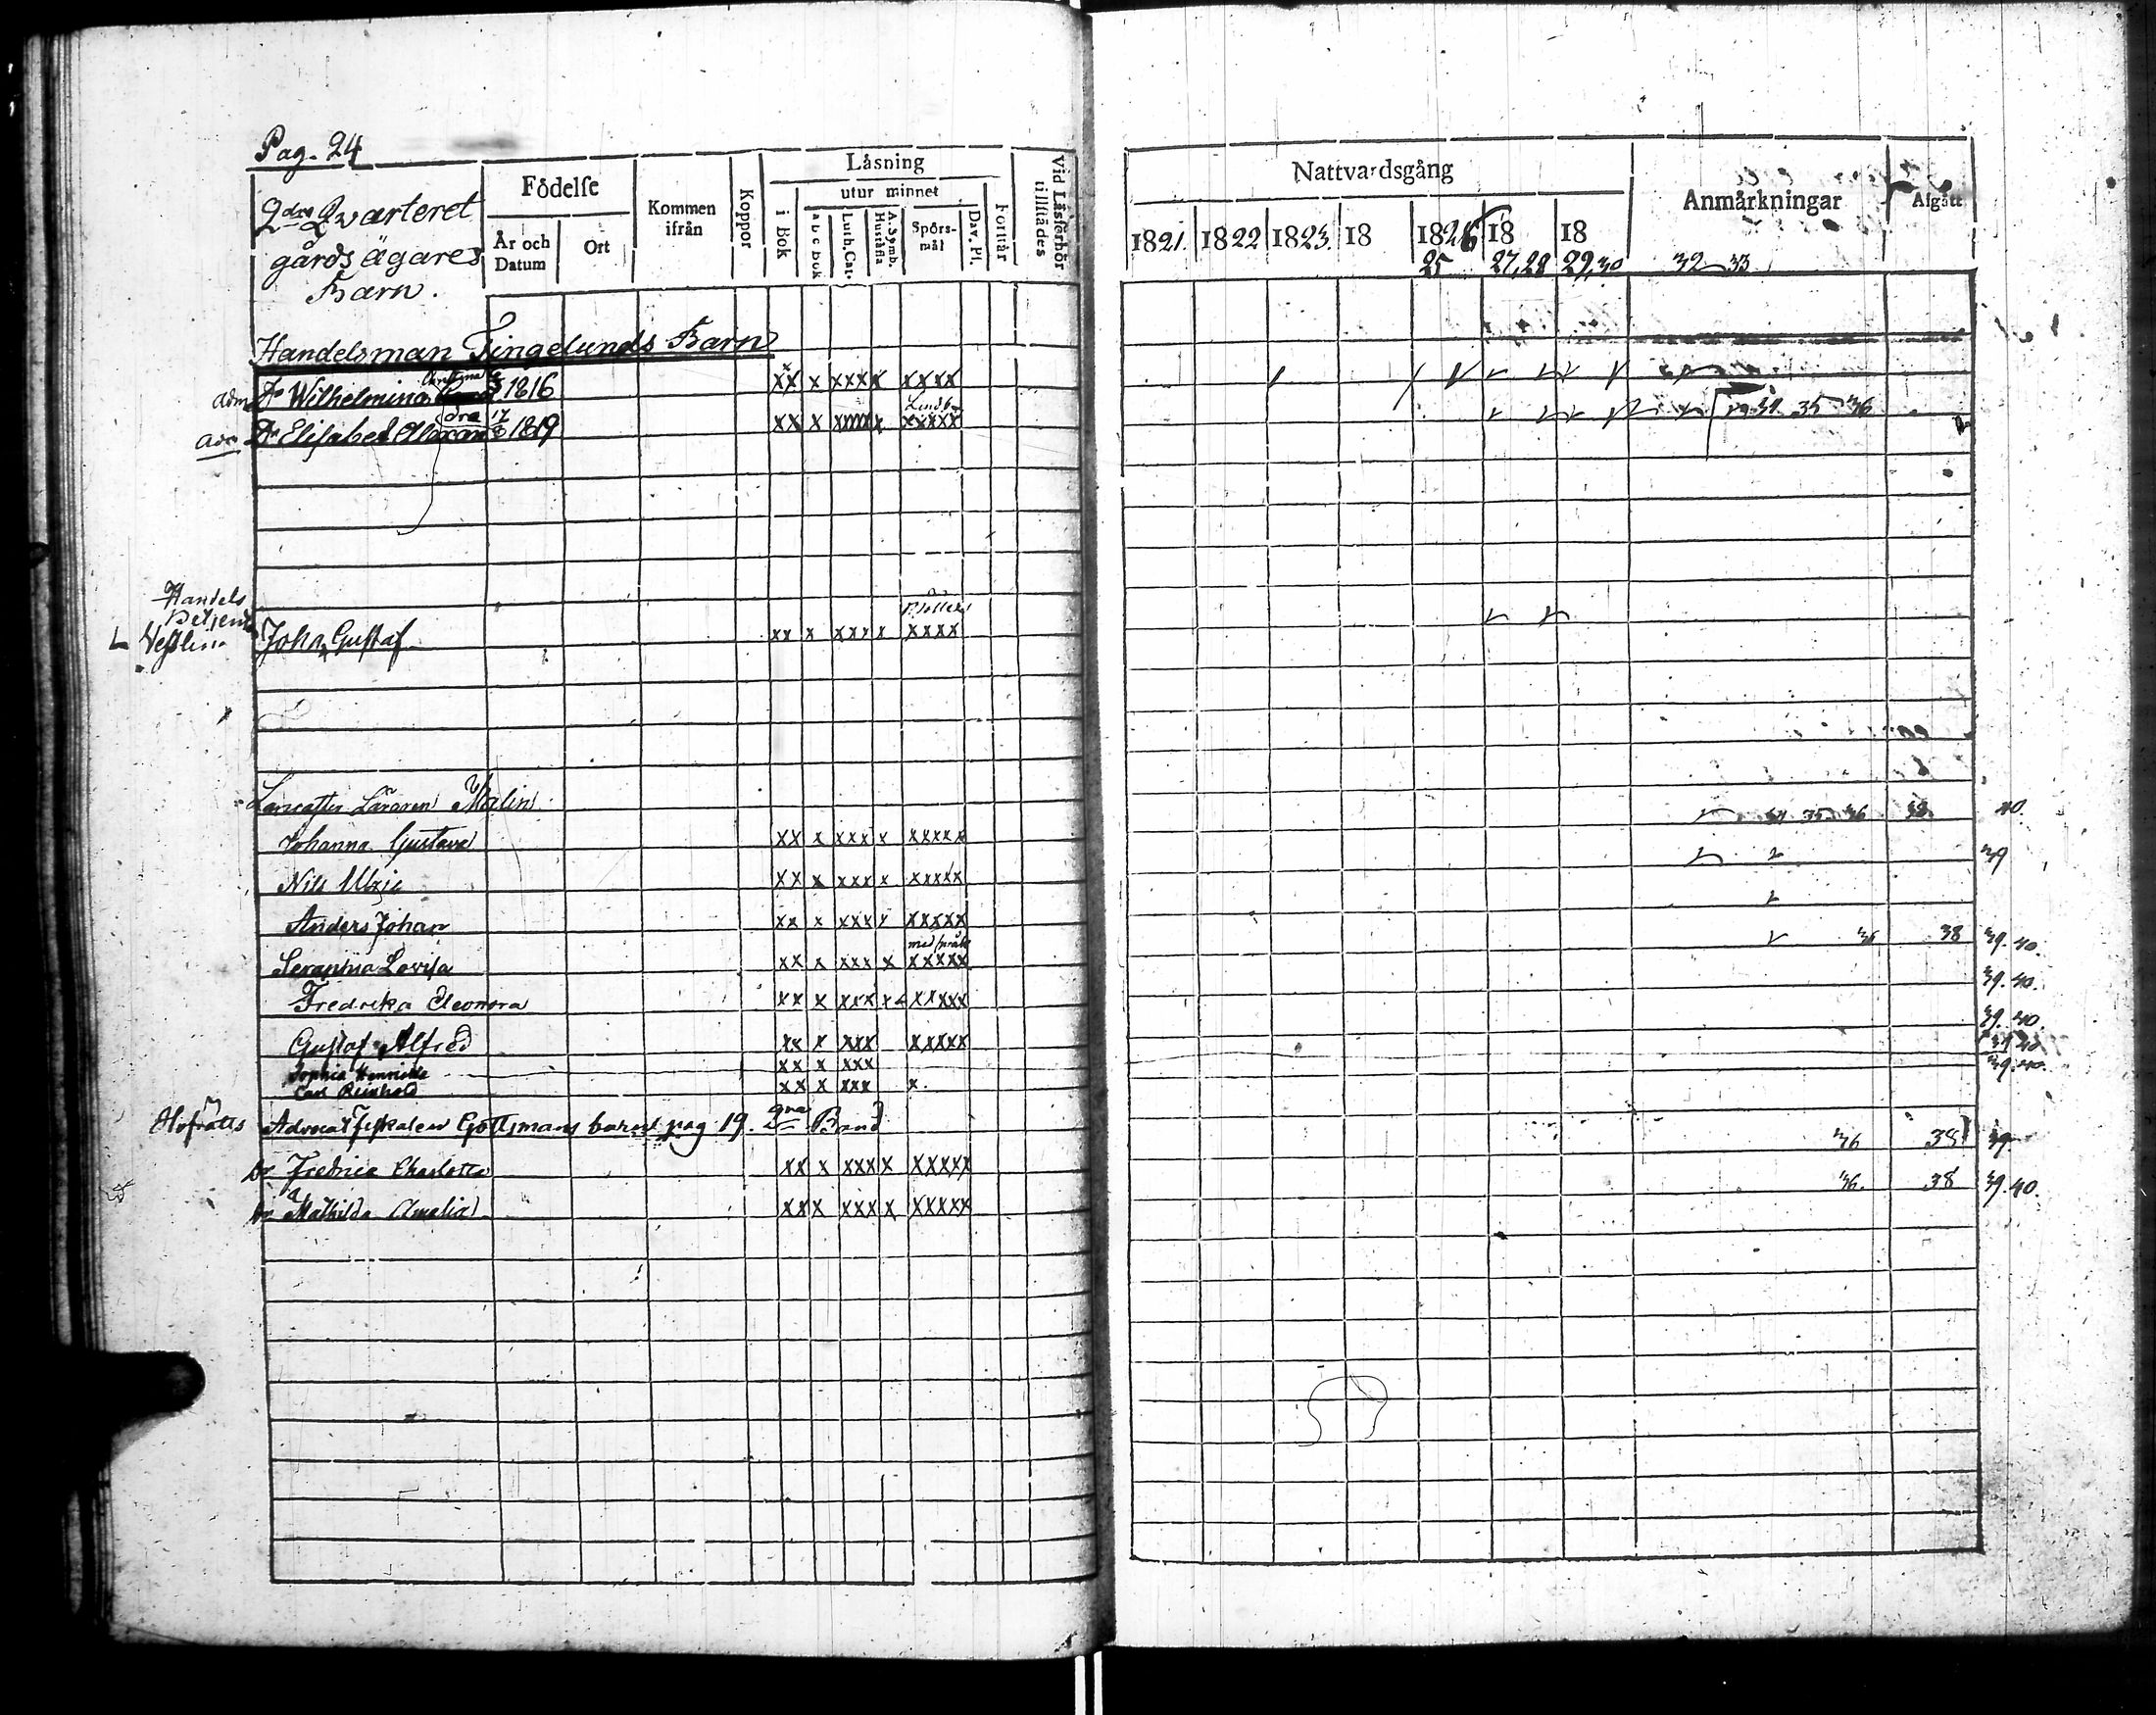 Pag. 24
2dra Qvarteret
gårds ägares
Barn.
Födelse
År och Datum
Ort
Kommen ifrån
Koppor
Läsning
i Bok
utur minnet
a b c bok
Luth. Cat.
A. Symb. Hustafla
Spörsmål
Dav. Pl.
Förstår
Vid Läsförhör tillstädes
Nattvardsgång
1821.
1822
1823.
18
1826
25
18
27, 28
18
29, 30
Anmärkningar
32 33
Afgått
Handelsman Tingelunds Barn
adm Dr Wilhelmina 1816 xx x xxxx xxxx
Dr Elisabet 17 1819 xx x xxxxx xxxxx 34. 35 36
Handels
Betjent
Johan Gustaf xx x xxx x xxxx
Läraren Malin
Johanna Gustava xx x xxx x xxxxx 34 35 36 38. 40.
Nils xx x xxx x xxxxx 39
Anders Johan xx x xxx x xxxxx
Seraphia Lovisa xx x xxx x xxxxx 36 38 39. 40.
Fredrika Eleonora xx x xxx x xxxxx 39. 40.
Gustaf Alfred xx x xxx xxxxx 39. 40.
Sophia Henrietta xx x xxx 39 40
Carl Reinhold xx x xxx x. 39. 40.
Hofrätts Advocat Fiskalen Gottsmans barn pag 19. 2dra Band
Fredrica Charlotta xx x xxx x xxxxx 36 38 39
Mathilda Amalia xx x xxx x xxxxx 36. 38 39. 40.